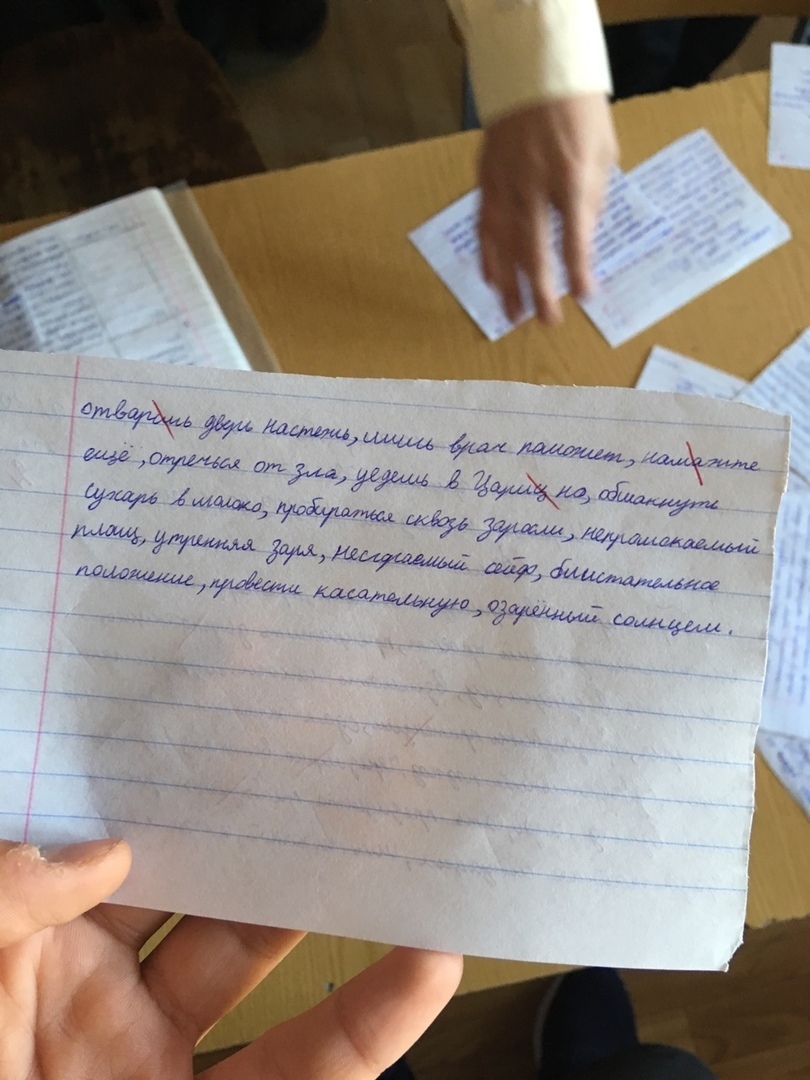 отваришь дверь настежь, лишь врач поможет, намажте
ещё, отречься от зла, уедешь в Цариц но, обмакнуть
сухарь в молоко, пробираться сквозь заросли, непромокаемый
плащ, утренняя заря, несгораемый сейф, блистательное
положение, провести касательную, озарённый солнцем.